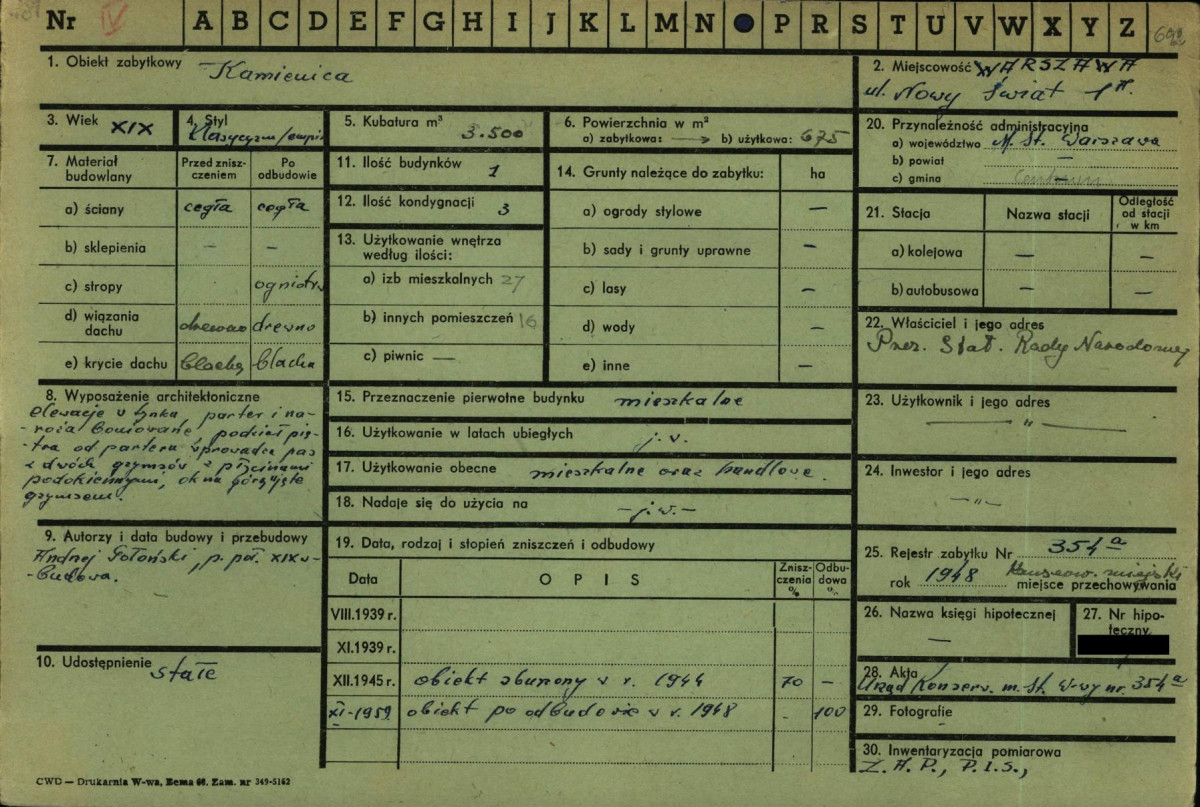 Nr IV A B C D E F G H I J K L M N P R S T U V W X Y Z
1. Obiekt zabytkowy Kamienica
2. Miejscowość WARSZAWA
ul. Nowy Świat 1A.
3. Wiek XIX
4. Styl
Klasycyzm/empir
5. Kubatura m³ 3.500
6. Powierzchnia w m²
a) zabytkowa: → b) użytkowa: 675
7. Materiał budowlany
Przed zniszczeniem
Po odbudowie
a) ściany cegła cegła
b) sklepienia – –
c) stropy ogniotrw
d) wiązania dachu drewno drewno
e) krycie dachu blacha blacha
8. Wyposażenie architektoniczne
elewacje w tynku, parter i na-
-roża boniowane, podział pię-
-tra od parteru wprowadza pas
z dwóch gzymsów z płycinami
podokiennymi, okna
gzymsem.
9. Autorzy i data budowy i przebudowy
Andrzej Gołoński, p. poł. XIX w -
- budowa.
10. Udostępnienie stałe
11. Ilość budynków 1
12. Ilość kondygnacji 3
13. Użytkowanie wnętrza
według ilości:
a) izb mieszkalnych 27
b) innych pomieszczeń 16
c) piwnic —
14. Grunty należące do zabytku: ha
a) ogrody stylowe –
b) sady i grunty uprawne –
c) lasy –
d) wody –
e) inne –
15. Przeznaczenie pierwotne budynku mieszkalne
16. Użytkowanie w latach ubiegłych j. w.
17. Użytkowanie obecne mieszkalne oraz handlowe.
18. Nadaje się do użycia na – j.w. –
19. Data, rodzaj i stopień zniszczeń i odbudowy
Data OPIS Zniszczenia % Odbudowa %
VIII.1939 r.
XI.1939 r.
XII.1945 r. obiekt zburzony w r. 1944 70 –
XI-1959 obiekt po odbudowie w r. 1948 - 100
20. Przynależność administracyjna
a) województwo M. St. Warszawa
b) powiat –
c) gmina Centrum
21. Stacja Nazwa stacji Odległość od stacji w km
a) kolejowa — –
b) autobusowa – –
22. Właściciel i jego adres
Prez. Stoł. Rady Narodowej
23. Użytkownik i jego adres
— „ —
24. Inwestor i jego adres
— „ —
25. Rejestr zabytku Nr 354a
rok 1948 Konserw. miejski
miejsce przechowywania
26. Nazwa księgi hipotecznej
—
27. Nr hipoteczny
28. Akta
Urząd Konserw. m. St. W-wy nr. 354a
29. Fotografie
-
30. Inwentaryzacja pomiarowa
Z. A. P., P.I.S.,
CWD — Drukarnia W-wa, Bema 60. Zam. nr 349-5162